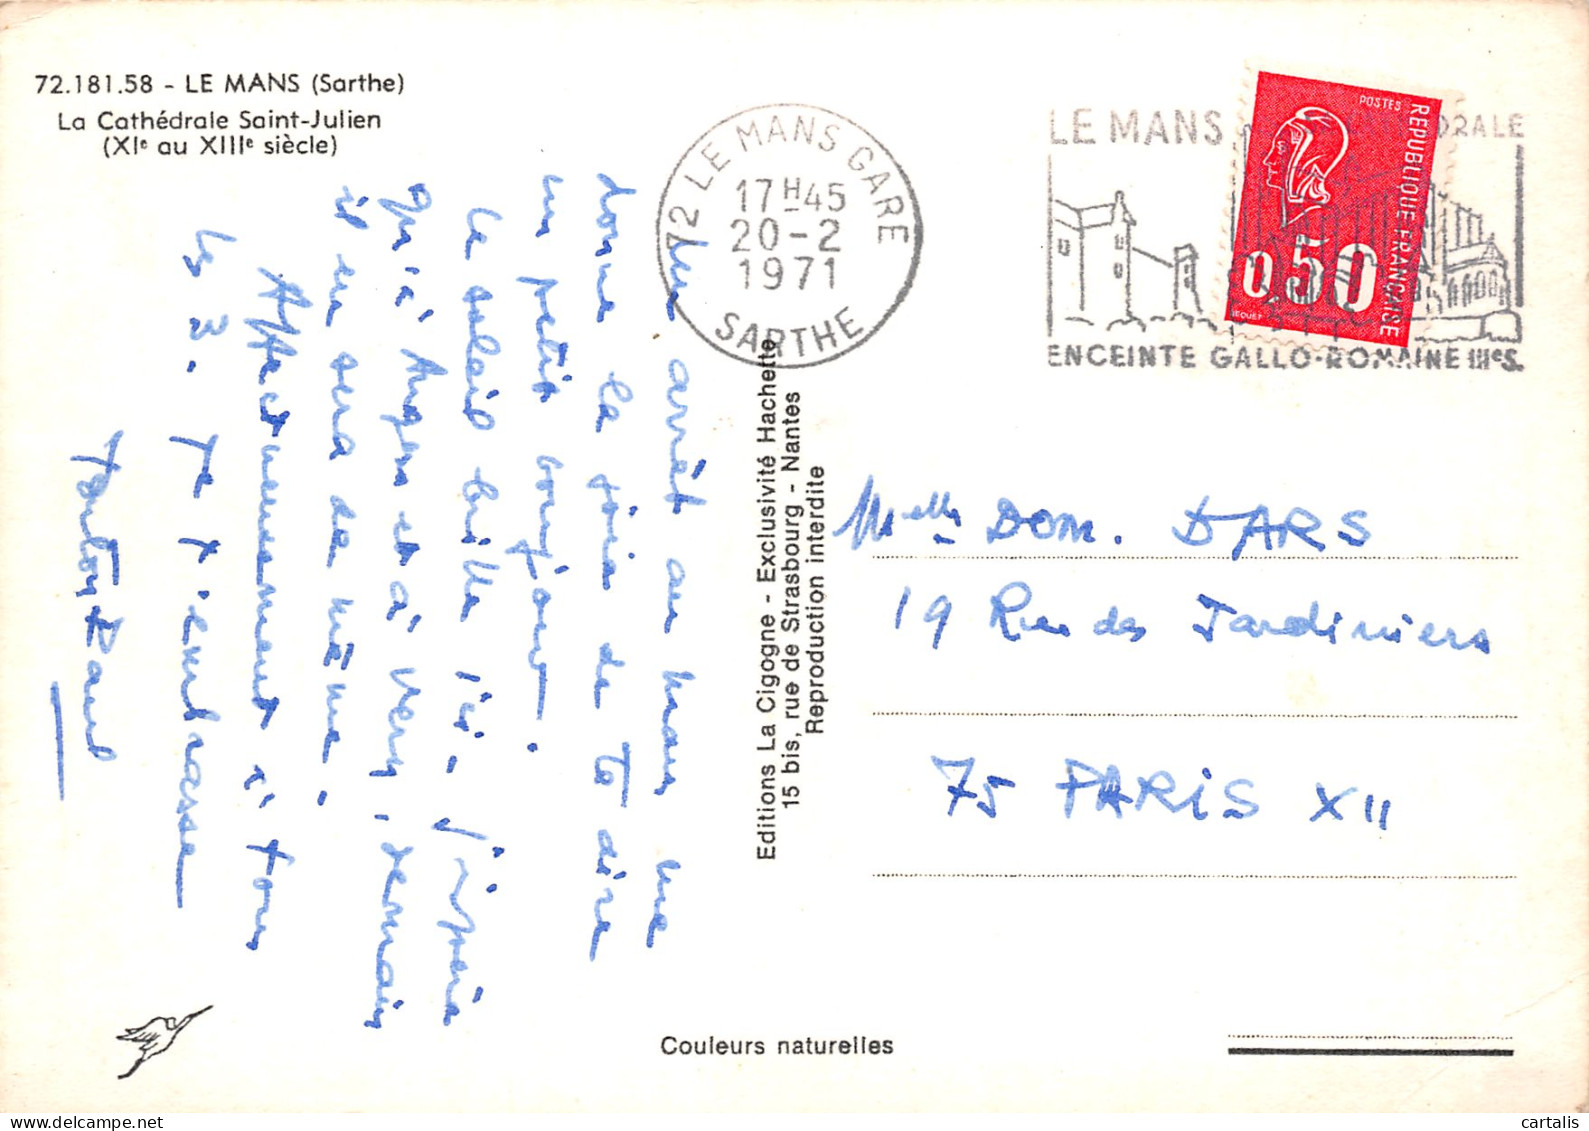 72.181.58 - LE MANS (Sarthe)
La Cathédrale Saint-Julien
(XIe au XIIIe siècle)
72 LE MANS GARE
17H45
20-2
1971
SARTHE
LE MANS DRALE
ENCEINTE GALLO-ROMAINE IIIeS.
POSTES
REPUBLIQUE FRANÇAISE
0,50
BEQUET
arrêt au Mans me
donne la joie de te dire
un petit bonjour.
Le soleil brille ici. J'espère
qu'à Angers et à Vern, demain
il en sera de même.
Affectueusement à tous
les 3. Je t'embrasse
Tonton Paul
Editions La Cigogne - Exclusivité Hachette
15 bis, rue de Strasbourg - Nantes
Reproduction interdite
Melle DOM. DARS
19 Rue des Jardiniers
75 PARIS XII
Couleurs naturelles
cartalis
www.delcampe.net